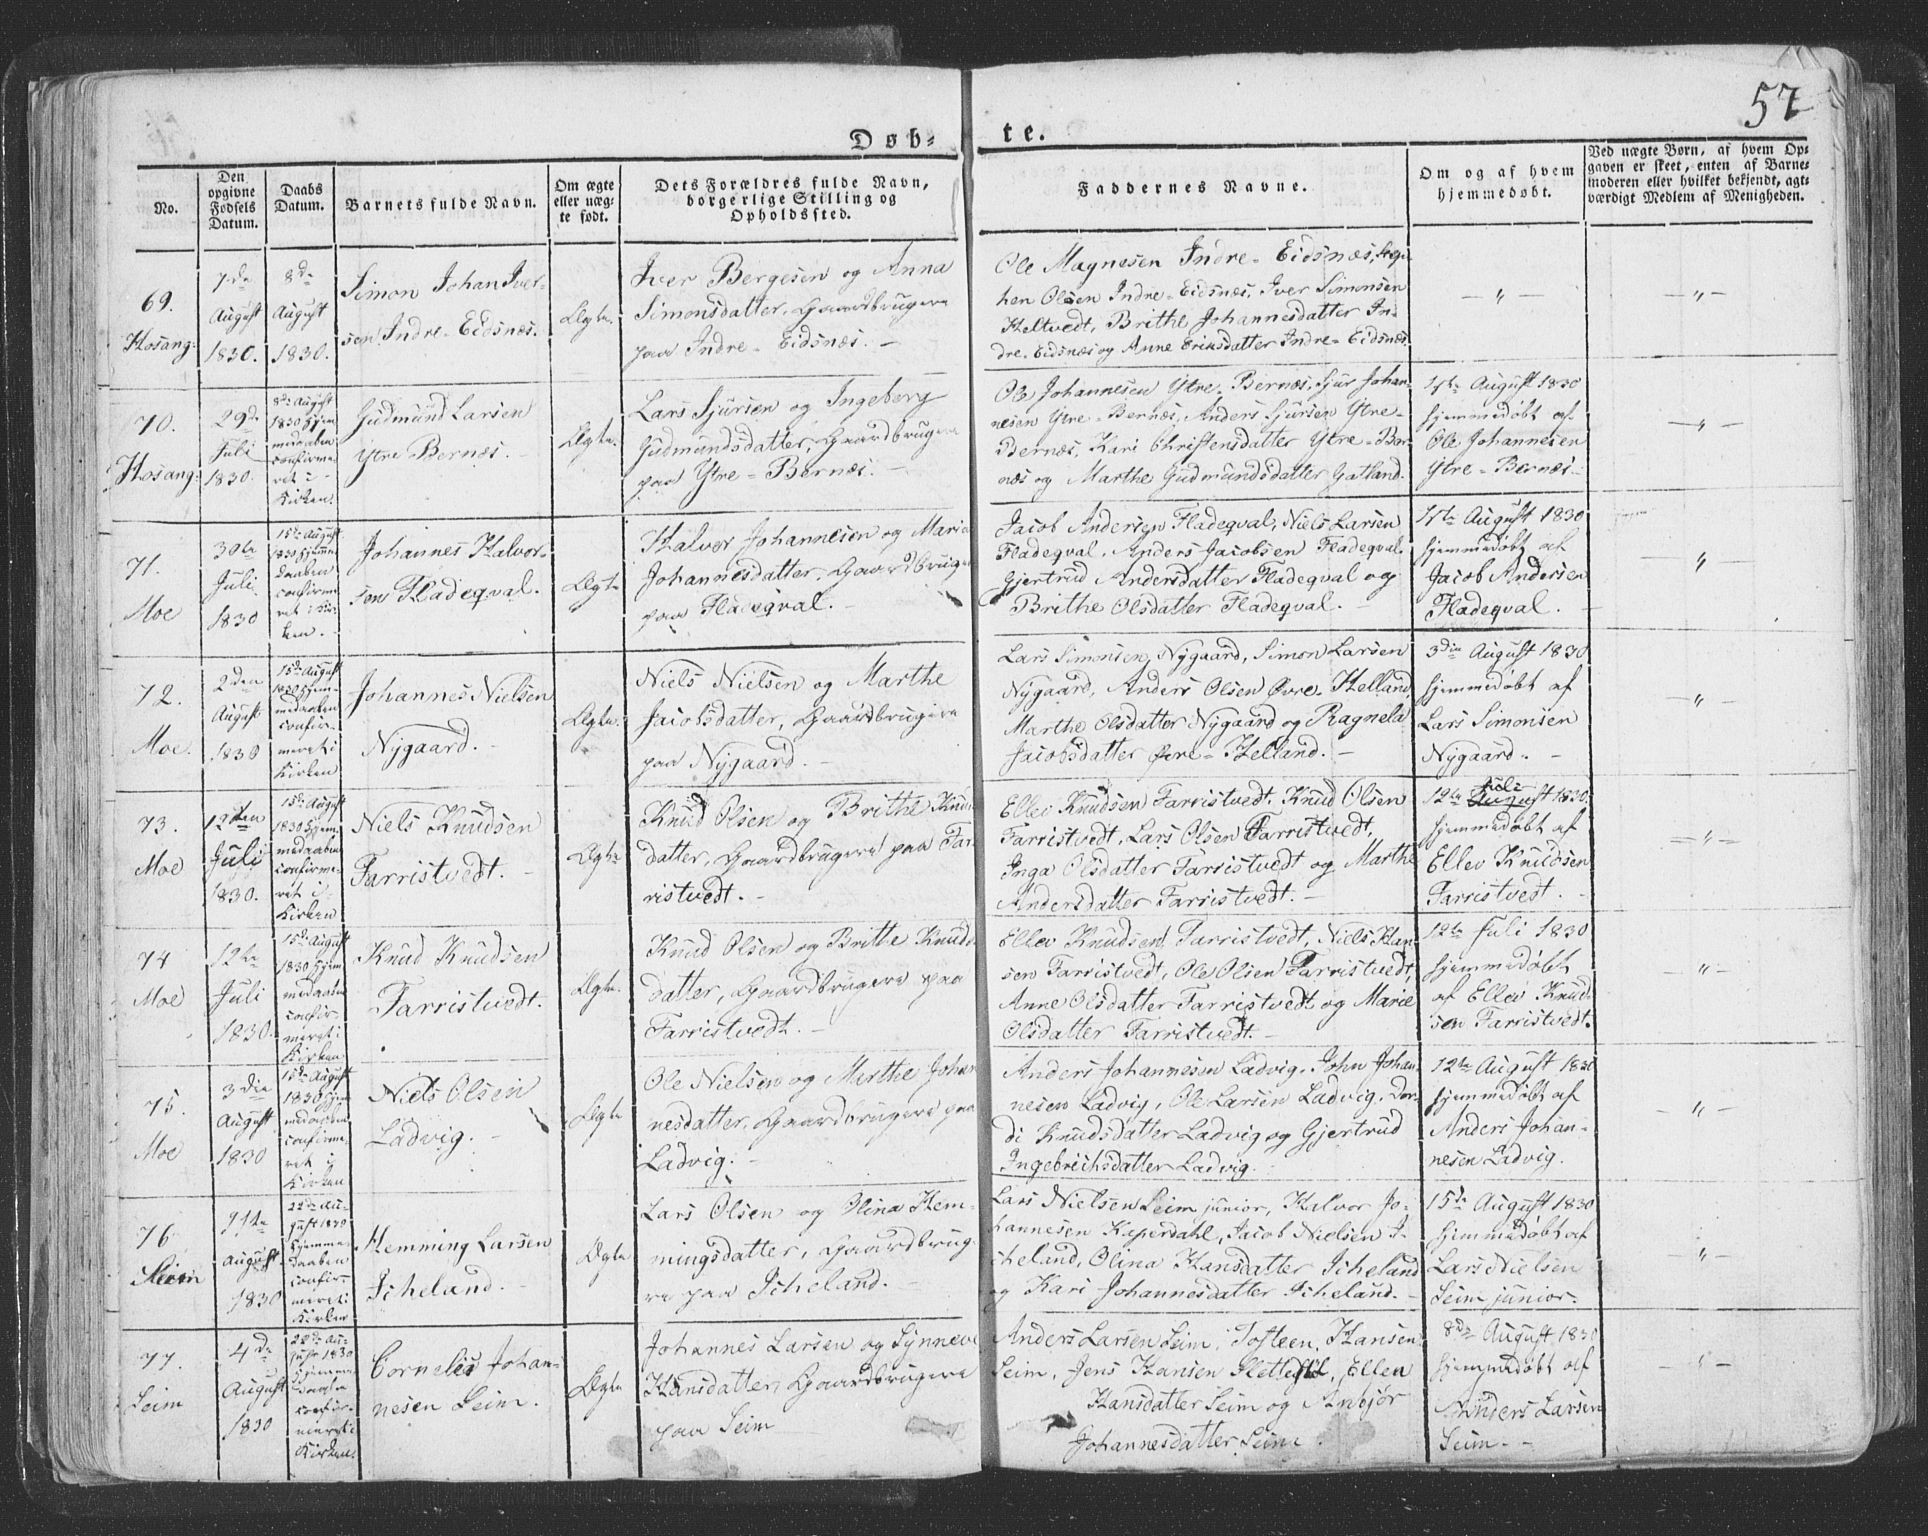 57
Døb-
te.
No.
Den
opgivne
Fødsels
Datum.
Daabs
Datum.
Barnets fulde Navn.
Om ægte
eller uæg-
te født.
Dets Forældres fulde Navn,
borgerlige Stilling og
Opholdssted.
Faddernes Navne.
Om og af hvem
hjemmedøbt.
Ved uægte Børn, af hvem Op-
gaven er skeet, enten af Barne-
moderen eller hvilket bekjendt, agt-
værdigt Medlem af Menigheden.
69.
Hosang:
7de
August
1830.
8de
August
1830.
Simon Johan Iver-
sen Indre-Eidsnæs.
Ægte.
Iver Bergesen og Anna
Simonsdatter, Gaardbrugere
paa Indre-Eidsnæs.-
Ole Magnesen Indre-Eidsnæs, Step-
hen Olsen Indre-Eidsnæs, Iver Simonsen
Heltvedt, Brithe Johannesdatter In-
dre-Eidsnæs og Anne Eriksdatter Indre-Eidsnæs.
-"-
-"-
70.
Hosang:
29de
Juli
1830.
8de August
1830 Hjem-
medaaben
confirme-
ret i
Kirken.
Gudmund Larsen
Ytre Bernæs.-
Ægte.
Lars Sjursen og Ingeberg
Gudmundsdatter, Gaardbrugere
paa Ytre-Bernæs.-
Ole Johannesen Ytre-Bernæs, Sjur Johan-
nesen Ytre-Bernæs, Anders Sjursen Ytre-
Bernæs, Kari Christensdatter Ytre-Ber-
næs og Marthe Gudmundsdatter Gatland.
August 1830
hjemmedøbt af
Ole Johannesen
Ytre-Bernæs.-
-"-
71.
Moe
30te
Juli
1830
15de August
1830 Hjemme-
daaben
confirme-
ret i Kir-
ken.-
Johannes Halvor-
sen Fladeqval.
Ægte
Halvor Johannesen og Maria
Johannesdatter, Gaardbrugere
paa Fladeqval.-
Jacob Andersen Fladeqval, Niels Larsen
Fladeqval, Anders Jacobsen Fladeqval,
Gjertrud Andersdatter Fladeqval og
Brithe Olsdatter Fladeqval.-
August 1830
hjemmedøbt af
Jacob Andersen
Fladeqval.-
"-
72.
Moe.
2den
August
1830
15de August
1830 Hjem-
medaaben
confir-
meret i
Kirken
Johannes Nielsen
Nygaard.-
Ægte.
Niels Nielsen og Marthe
Jacobsdatter, Gaardbrugere
paa Nygaard.-
Lars Simonsen Nygaard, Simon Larsen
Nygaard, Anders Olsen Øvre-Helland,
Marthe Olsdatter Nygaard og Ragnela
Jacobsdatter Øvre-Helland.-
3die August 1830
hjemmedøbt af
Lars Simonsen
Nygaard.-
"-
73.
Moe
12ten
Juli
1830.
15de August
1830 Hjem-
medaaben
confirme-
ret i
Kirken
Niels Knudsen
Farristvedt.-
Ægte
Knud Olsen og Brithe Knuds-
datter, Gaardbrugere paa Far-
ristvedt.-
Ellev Knudsen Farristvedt, Knud Olsen
Farristvedt, Lars Olsen Farristvedt,
Inga Olsdatter Farristvedt og Marthe
Andersdatter Farristvedt.-
Juli
12te August 1830.
hjemmedøbt af
Ellev Knudsen
Farristvedt.-
-"-
74
Moe
12te
Juli
1830.
15de August
1830 Hjem-
medaaben
confir-
meret i
Kirken
Knud Knudsen
Farristvedt.
Ægte.
Knud Olsen og Brithe Knuds-
datter, Gaardbrugere paa
Farristvedt.-
Ellev Knudsen Farristvedt, Niels Han-
sen Farristvedt, Ole Olsen Farristvedt,
Anne Olsdatter Farristvedt og Marie
Olsdatter Farristvedt.-
12te Juli 1830
hjemmedøbt
af Ellev Knud-
sen Farristvedt.
"-
75.
Moe
3die
August
1830
15de August
1830 Hjem-
medaaben
confirme-
ret i
Kirken
Niels Olsen
Ladvig.-
Ægte
Ole Nielsen og Marthe Johan-
nesdatter, Gaardbrugere paa
Ladvig.-
Anders Johannesen Ladvig, John Johan-
nesen Ladvig, Ole Larsen Ladvig, Dor-
di Knudsdatter Ladvig og Gjertrud
Ingebrichsdatter Ladvig.
12te August 1830
hjemmedøbt af
Anders Johan-
nesen Ladvig.
-"-
76.
Seim
August
1830
22de Au-
gust 1830
Hjemme-
daaben
confir-
meret i
Kirken
Hemming Larsen
Icheland.
Ægte
Lars Olsen og Olina Hem-
mingsdatter, Gaardbruge-
re paa Icheland.-
Lars Nielsen Seim junior, Halvor Jo-
hannesen Kaperdahl, Jacob Nielsen I-
cheland, Olina Hansdatter Icheland
og Kari Johannesdatter Icheland.-
15de August 1830
hjemmedøbt af
Lars Nielsen
Seim junior.
"-
77.
Seim
4de
August
1830
22de Au-
gust 1830
Hjemme-
daaben
confir-
meret i
Kirken.
Cornelis Johan-
nesen Seim.
Ægte
Johannes Larsen og Synneve
Hansdatter, Gaardbrugere
paa Seim
Anders Larsen Seim, Tosteen Hansen
Seim, Jens Hansen Ellen
Hansdatter Seim og Anbjør
Johannesdatter Seim.
8de August 1830
hjemmedøbt af
Anders Larsen
Seim.-
-"-